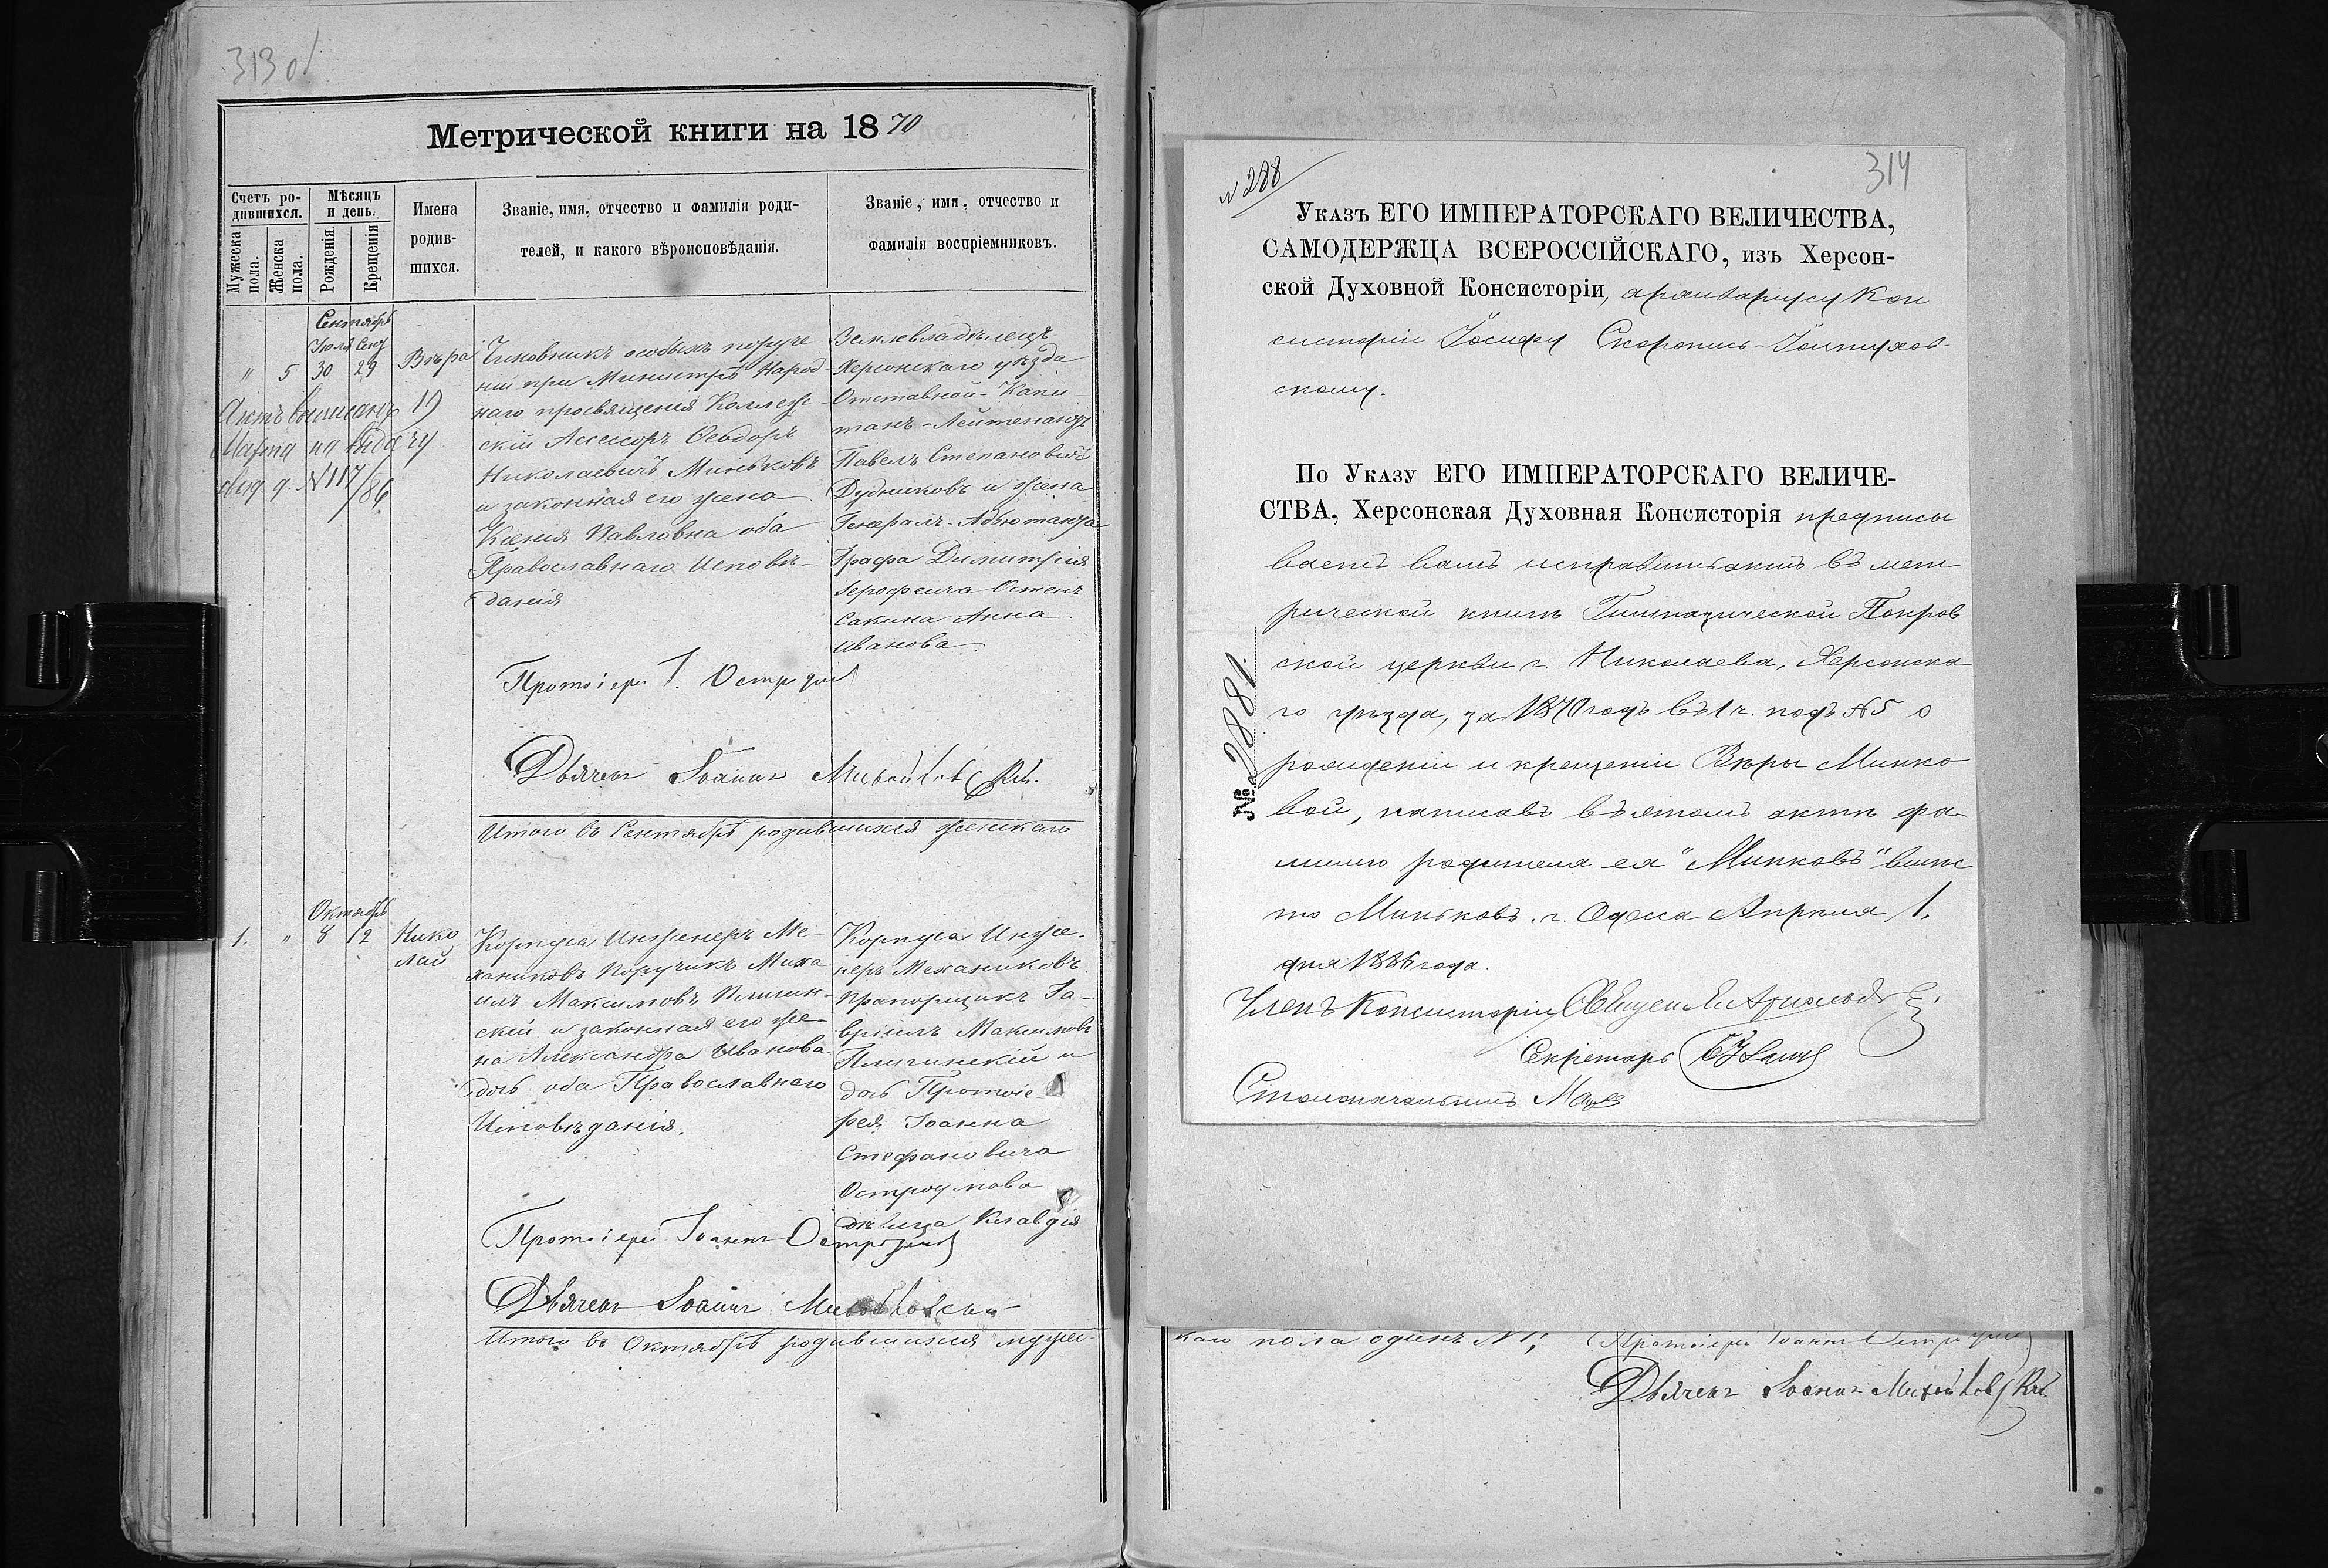 313 об
Метрической книги на 1870
Счетъ ро-
дившихся.
Мужеска пола.
Женска пола.
Мѣсяцъ
и день.
Рожденія.
Крещенія
Имена
родив-
шихся.
Званіе, имя, отчество и фамилія роди-
телей, и какого вѣроисповѣданія.
Званіе, имя, отчество и
фамилія воспріемниковъ.
Сентябрь
Іюля Сен
" 5 30 29
Вѣра
Актъ выписанъ 19
Марта на выдачу
д. №117/86
Чиновникъ особыхъ поруче
ній при Министрѣ Народ
наго просвященія Коллеж
скій Ассесоръ Ѳеодоръ
Николаевичъ Миньковъ
и законная его жена
Ксенія Павловна оба
Православнаго Исповѣ-
данія
Землевладѣлецъ
Херсонскаго уѣзда
Отставной-Капи
танъ-Лейтенантъ
Павелъ Степановичъ
Дудниковъ и жена
Генералъ-Адъютанта
Графа Димитрія
Ерофеича Остенъ
Сакина Анна
Иванова.
Протоіерей І. Остроумов
Дьячекъ Іоаннъ Михайловскій.
Итого въ Сентябрѣ родившихся женскаго
Октябрь
1. " 8 12
Нико
лай
Корпуса Инженеръ Ме-
ханиковъ Поручикъ Миха
илъ Максимовъ Пличин-
скій и законная его же
на Александра Иванова
дочь оба Православнаго
Исповѣданія.
Корпуса Инже-
неръ Механиковъ
Прапорщикъ Га-
вріилъ Максимовъ
Пличинскій и
дочь Протоіе
рея Іоанна
Стефановича
Остроумова
дѣвица Клавдія
Протоіерей Іоаннъ Остроумов
Дьячекъ Іоаннъ Михайловскій
Итого въ Октябрѣ родившихся муже-
№ 288
314
Указъ ЕГО ИМПЕРАТОРСКАГО ВЕЛИЧЕСТВА,
САМОДЕРЖЦА ВСЕРОССІЙСКАГО, изъ Херсон-
ской Духовной Консисторіи, архиваріусу Кон
систоріи Іосифу Скоропись-Іолтухов-
скому.
По Указу ЕГО ИМПЕРАТОРСКАГО ВЕЛИЧЕ-
СТВА, Херсонская Духовная Консисторія предписы
ваетъ вамъ исправить актъ въ мет
рической книгѣ Гимназической Покров
ской церкви г. Николаева, Херсонска
го уѣзда, за 1870 годъ въ 1 ч. подъ №5 о
рожденіи и крещеніи Вѣры Минко
вой, написавъ въ этомъ актѣ фа-
милію родителя ея "Минковъ" вмѣс
то Миньковъ. г. Одесса Апрѣля 1.
дня 1886 года.
Членъ Консисторіи Священ.
Секретарь
Столоначальникъ
№ 2881.
каго пола одинъ №1;
Протоіерей Іоаннъ Остроумов
Дьячекъ Іоаннъ Михайловскій